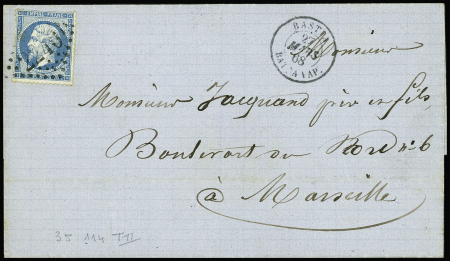 EMPIRE FRANC.
BAST
27
MARS
68
BAT. A VAP.
Monsieur
Monsieur Jacquand père et fils
Boulevart du Nord n° 6
à Marseille
35 114 TII